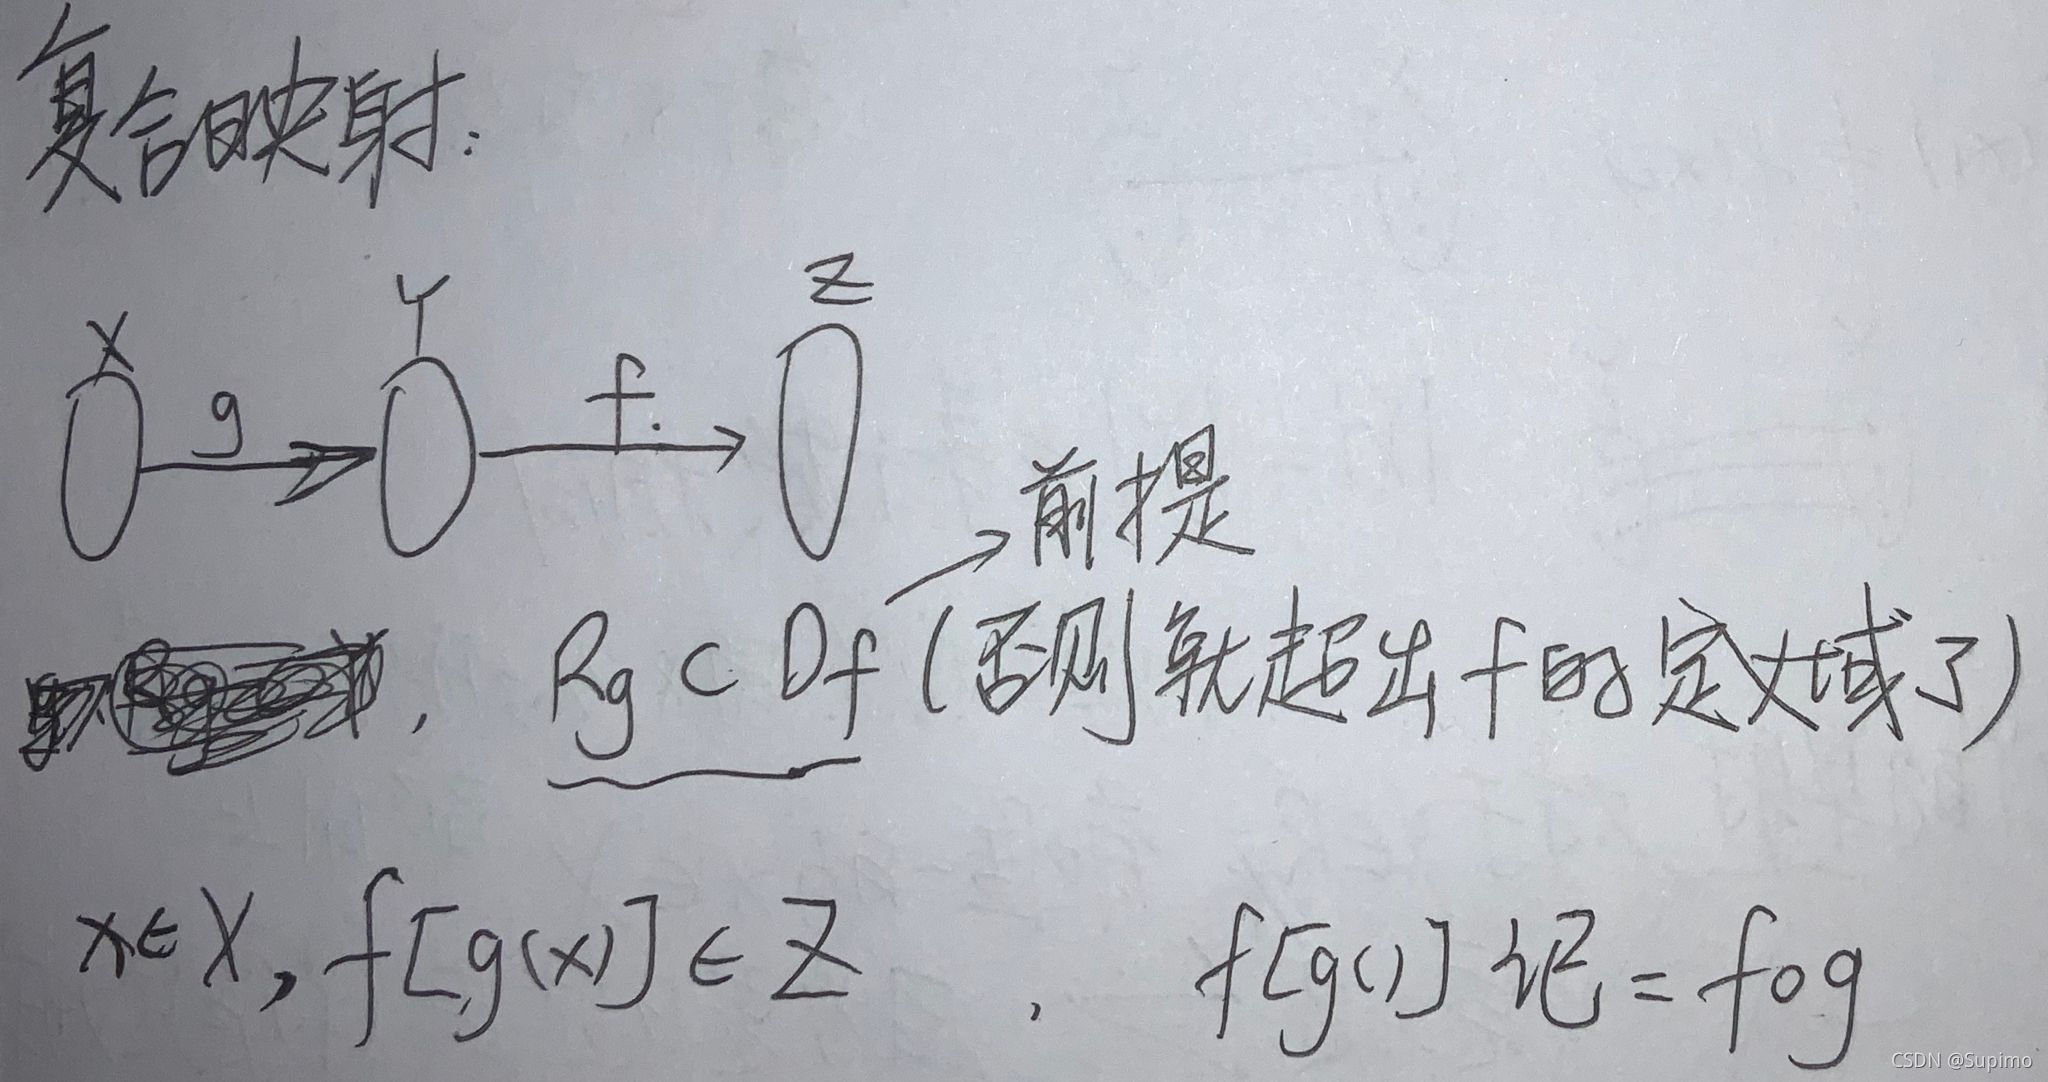 复合映射:
X Y Z
g f.
前提
, Rg ⊂ Df (否则就超出f的定义域了)
x∈X, f[g(x)]∈Z , f[g()] 记 = fog
CSDN @Supimo